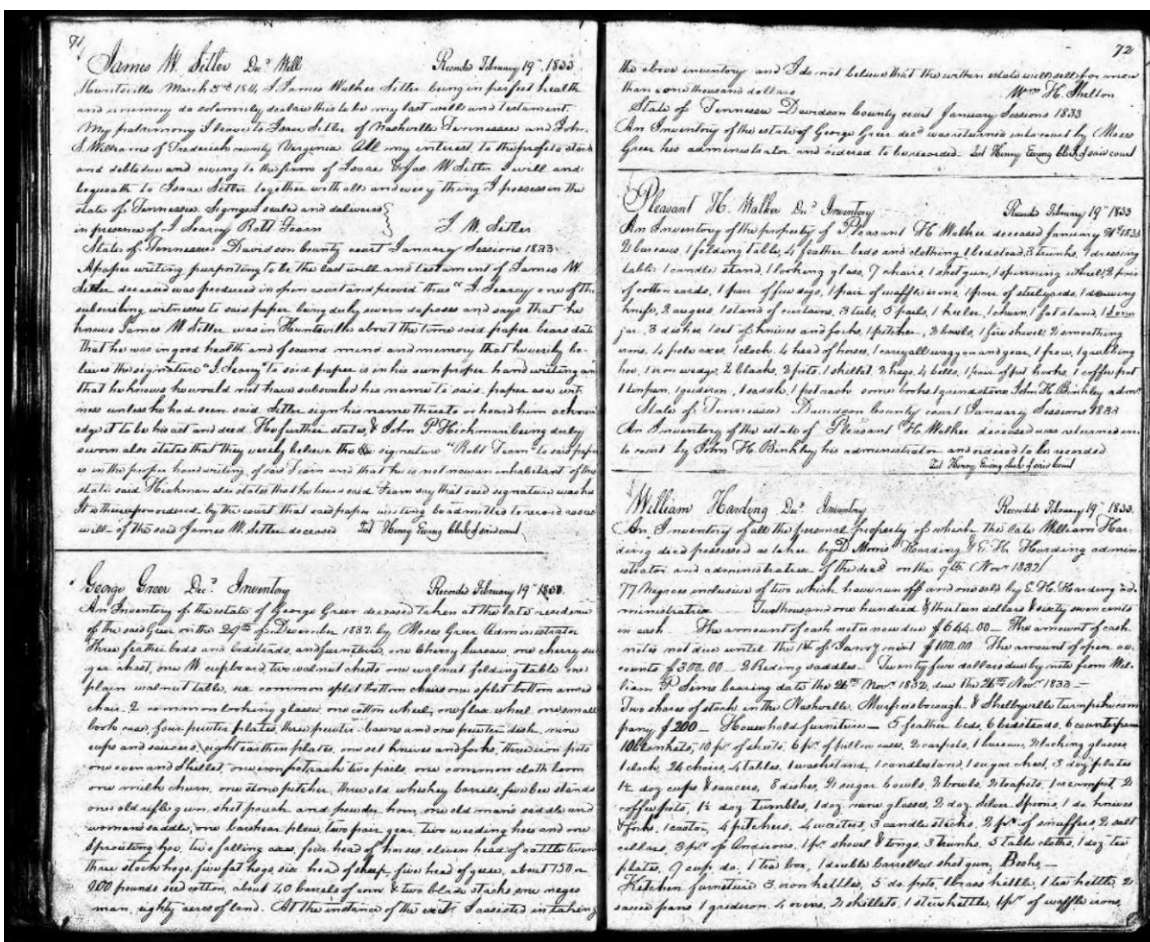 71
James W. Sitler Decd Will Recorded February 19th 1833
Huntsville March 5th 1814 I James Walker Sitler being in perfect health
and memory do solemnly declare this to be my last will and testament.
My patrimony I leave to Isaac Sitler of Nashville Tennessee and John
S. Williams of Frederick county Virginia All my interest, to the profits stock
and debts due and owing to the firm of Isaac & Jas. W Sitler I will and
bequeath to Isaac Sitler together with all and every thing I possess in the
state of Tennessee. Signed sealed and delivered
in presence of J Searcy Robt Fearn J. W. Sitler
State of Tennessee Davidson County court January Sessions 1833
A paper writing purporting to be the last will and testament of James W.
Sitler deceased was produced in open court and proved thus "J. Searcy one of the
subscribing witnesses to said paper being duly sworn deposes and says that he
knows James W Sitler was in Huntsville about the time said paper bears date
that he was in good health and of sound mind and memory that he verily be-
lieves the signature "J. Searcy" to said paper is in his own proper hand writing an
that he knows he would not have subscribed his name to said paper as a wit-
ness unless he had seen said Sitler sign his name thereto or heard him acknow
edge it to be his act and deed He further states, & John P. Hickman being duly
sworn also states that they verily believe the signature "Robt Fearn" to said paper
is in the proper handwriting of said Fearn and that he is not now an inhabitant of this
state said Hickman also states that he heard said Fearn say that said signature was his
It is thereupon ordered by the court that said paper writing be admitted to record as the
will of the said James W. Sitler deceased Test Henry Ewing clerk of said court
George Greer Decd Inventory Recorded February 19th 1833
An Inventory of the estate of George Greer deceased taken at the late residence
of the said Greer on the 29th of December 1832 by Moses Greer Administrator
Three feather beds and bedsteads, and furniture, one cherry bureau, one cherry su-
gar chest, one W cupboard, two walnut chests one walnut folding table, one
plain walnut table, six common split bottom chairs one split bottom armed
chair. 2 common looking glasses, one cotton wheel, one flax wheel one small
book case, four pewter plates, three pewter basons and one pewter dish, nine
cups and saucers, eight earthen plates, one set knives and forks, three iron pots
one oven and skillet, one iron pot rack two pails, one common cloth loom
one milk churn, one stone pitcher, three old whiskey barrels, five bee stands
one old rifle gun, shot pouch and powder horn, one old mans saddle and
womans saddle, one barshear plow, two pair gear, two weeding hoes and one
sprouting hoe, two falling axes, four head of horses, eleven head of cattle twen
three stock hogs, five fat hogs, six head of sheep, five head of geese, about 150 or
200 pounds seed cotton, about 40 barrels of corn & two blade stacks one negro
man, eighty acres of land. At the instance of the I assisted in taking
72
the above inventory and I do not believe that the within estate will sell for more
than one thousand dollars Wm H. Shelton
State of Tennessee Davidson County court January Sessions 1833
An Inventory of the estate of George Greer decd was returned into court by Moses
Greer his administrator and ordered to be recorded. Test Henry Ewing clerk of said court
Pleasant H. Walker Decd Inventory Recorded February 19th 1833
An Inventory of the property of Pleasant H Walker deceased January 1833
2 bureaus, 1 folding table, 4 feather beds and clothing 1 bedstead, 3 trunks, 1 dressing
table 1 candle stand, 1 looking glass, 7 chairs, 1 shot gun, 1 spinning wheel, 2 pair
of cotton cards, 1 pair of fire dogs, 1 pair of waffle irons, 1 pair of steelyards, 1 drawing
knife, 2 augers, 1 stand of curtains, 3 tubs, 5 pails, 1 keeler, 1 churn, 1 fat stand, 1
jar, 3 dishes 1 set of knives and forks, 1 pitcher, 2 bowls, 1 fire shovel 2 smoothing
irons, 4 pole axes, 1 clock, 4 head of horses, 1 carryall waggon and gear, 1 frow, 1 grubbing
hoe, 1 iron wedge, 2 blacks, 2 pots, 1 skillet, 2 hogs, 4 bells, 1 pair of pot hooks, 1 coffee pot
1 tin pan, 1 gridiron, 1 pot rack some books 1 grindstone John H. Binkley admr
State of Tennessee Davidson County court January Sessions 1833
An Inventory of the estate of Pleasant H. Walker deceased was returned in-
to court by John H. Binkley his administrator and ordered to be recorded
Test Henry Ewing clerk of said court
William Harding Decd Inventory Recorded February 19th 1833.
An Inventory of all the personal property of which the late William Har-
ding died possessed as taken by D Morris Harding & E. H. Harding admin-
istrator and administratrix of the decd on the 9th (Novr 1832)
77 Negroes inclusive of two which have run off and one sold by E. H. Harding ad-
ministratrix Two thousand one hundred & thirteen dollars & sixty seven cents
in cash. The amount of cash notes now due $644.00 — The amount of cash
notes not due until the 1st of Janry next $100.00. The amount of open ac-
counts $300.00 — 2 Riding saddles — Twenty five dollars due by note from Wil-
liam P Sims bearing date the 26th Novr 1832, due the 26th Novr 1833 —
Two shares of stock in the Nashville Murfreesborough & Shelbyville turnpike com
pany $200 — Household furniture — 5 feather beds, 6 bedsteads, 6 counterpans
10 blankets, 10 pr of sheets, 6 pr of pillow cases, 2 carpets, 1 bureau, 2 looking glasses
1 clock, 24 chairs, 4 tables, 1 washstand, 1 candlestand, 1 sugar chest, 3 doz plates
1½ doz cups & saucers, 8 dishes, 2 sugar bowls, 2 bowls, 2 teapots, 1 2
coffee pots, 1½ doz tumbles, 1 doz wine glasses, 2 doz Silver Spoons, 1 do knives
& forks, 1 castor, 4 pitchers, 4 waiters, 3 candle sticks, 2 pr of snuffers, 2 salt
cellars, 3 pr of Andirons, 1 pr shovel & tongs, 3 trunks, 5 table cloths, 1 doz tea
plates, 9 cup do, 1 tea box, 1 double barrelled shot gun, Books, —
Kitchen furniture 3 iron kettles, 5 do. pots, 1 brass kettle, 1 tea kettle, 2
sauce pans 1 gridiron, 4 ovens, 2 skillets, 1 stew kettle, 1 pr of waffle irons,